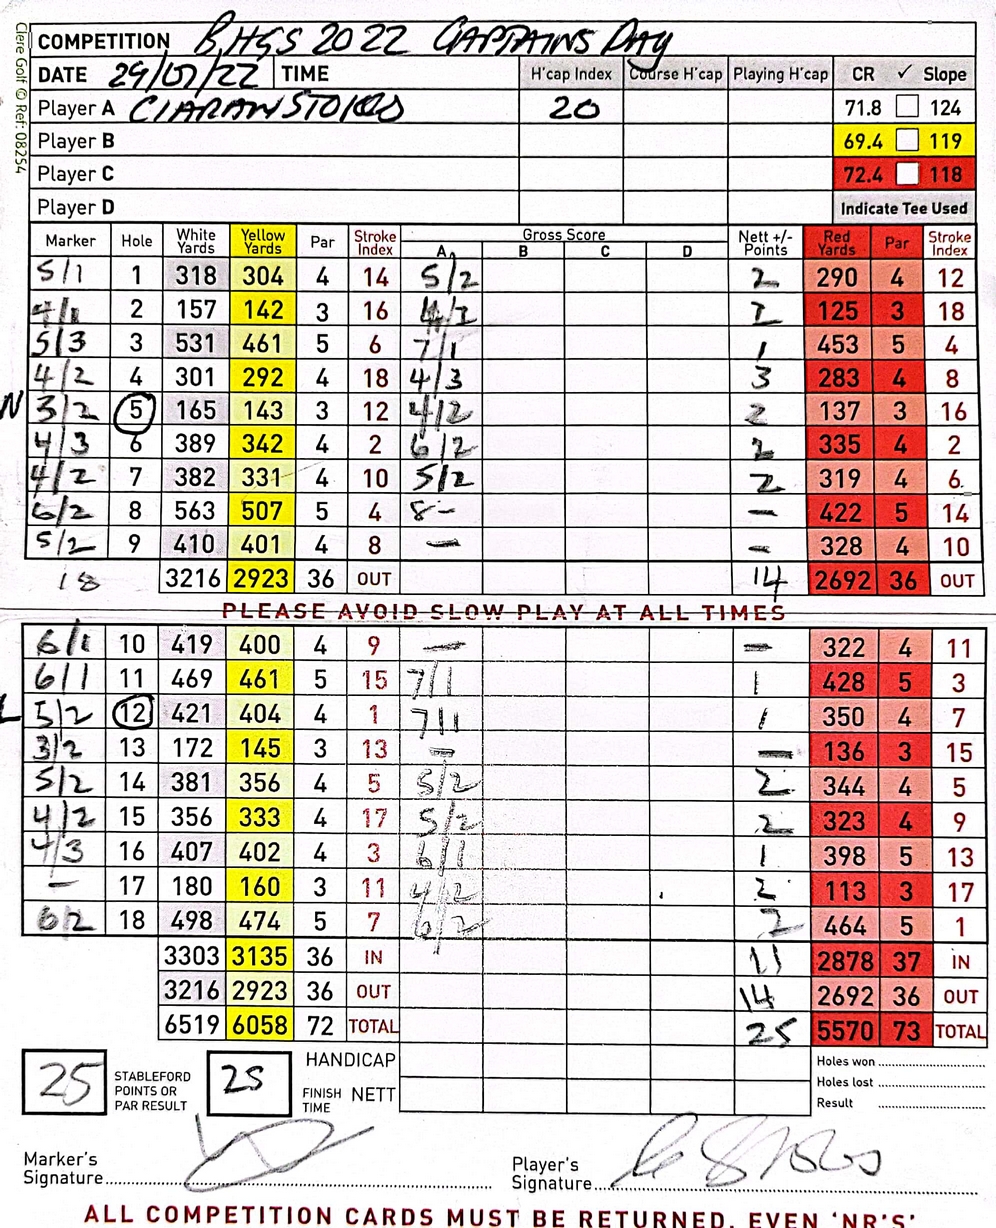 Clere Golf © Ref: 08254
COMPETITION B,HGS 2022 CAPTAINS DAY
DATE 29/07/22 TIME H'cap Index Course H'cap Playing H'cap CR ✓ Slope
Player A CIARAN STOKES 20 71.8 124
Player B 69.4 119
Player C 72.4 118
Player D Indicate Tee Used
Marker Hole White Yards Yellow Yards Par Stroke Index Gross Score A B C D Nett +/- Points Red Yards Par Stroke Index
5/1 1 318 304 4 14 5/2 2 290 4 12
4/1 2 157 142 3 16 4/2 2 125 3 18
5/3 3 531 461 5 6 7/1 1 453 5 4
4/2 4 301 292 4 18 4/3 3 283 4 8
N 3/2 5 165 143 3 12 4/2 2 137 3 16
4/3 6 389 342 4 2 6/2 2 335 4 2
4/2 7 382 331 4 10 5/2 2 319 4 6
6/2 8 563 507 5 4 8- – 422 5 14
5/2 9 410 401 4 8 – – 328 4 10
18 3216 2923 36 OUT 14 2692 36 OUT
PLEASE AVOID SLOW PLAY AT ALL TIMES
6/1 10 419 400 4 9 – – 322 4 11
6/1 11 469 461 5 15 7/1 1 428 5 3
L 5/2 12 421 404 4 1 7/1 1 350 4 7
3/2 13 172 145 3 13 – – 136 3 15
5/2 14 381 356 4 5 5/2 2 344 4 5
4/2 15 356 333 4 17 5/2 2 323 4 9
4/3 16 407 402 4 3 6/1 1 398 5 13
– 17 180 160 3 11 4/2 2 113 3 17
6/2 18 498 474 5 7 6/2 2 464 5 1
3303 3135 36 IN 11 2878 37 IN
3216 2923 36 OUT 14 2692 36 OUT
6519 6058 72 TOTAL 25 5570 73 TOTAL
25 STABLEFORD POINTS OR PAR RESULT 25 FINISH TIME HANDICAP NETT
Holes won
Holes lost
Result
Marker's Signature
Player's Signature C Stokes
ALL COMPETITION CARDS MUST BE RETURNED, EVEN 'NR'S'